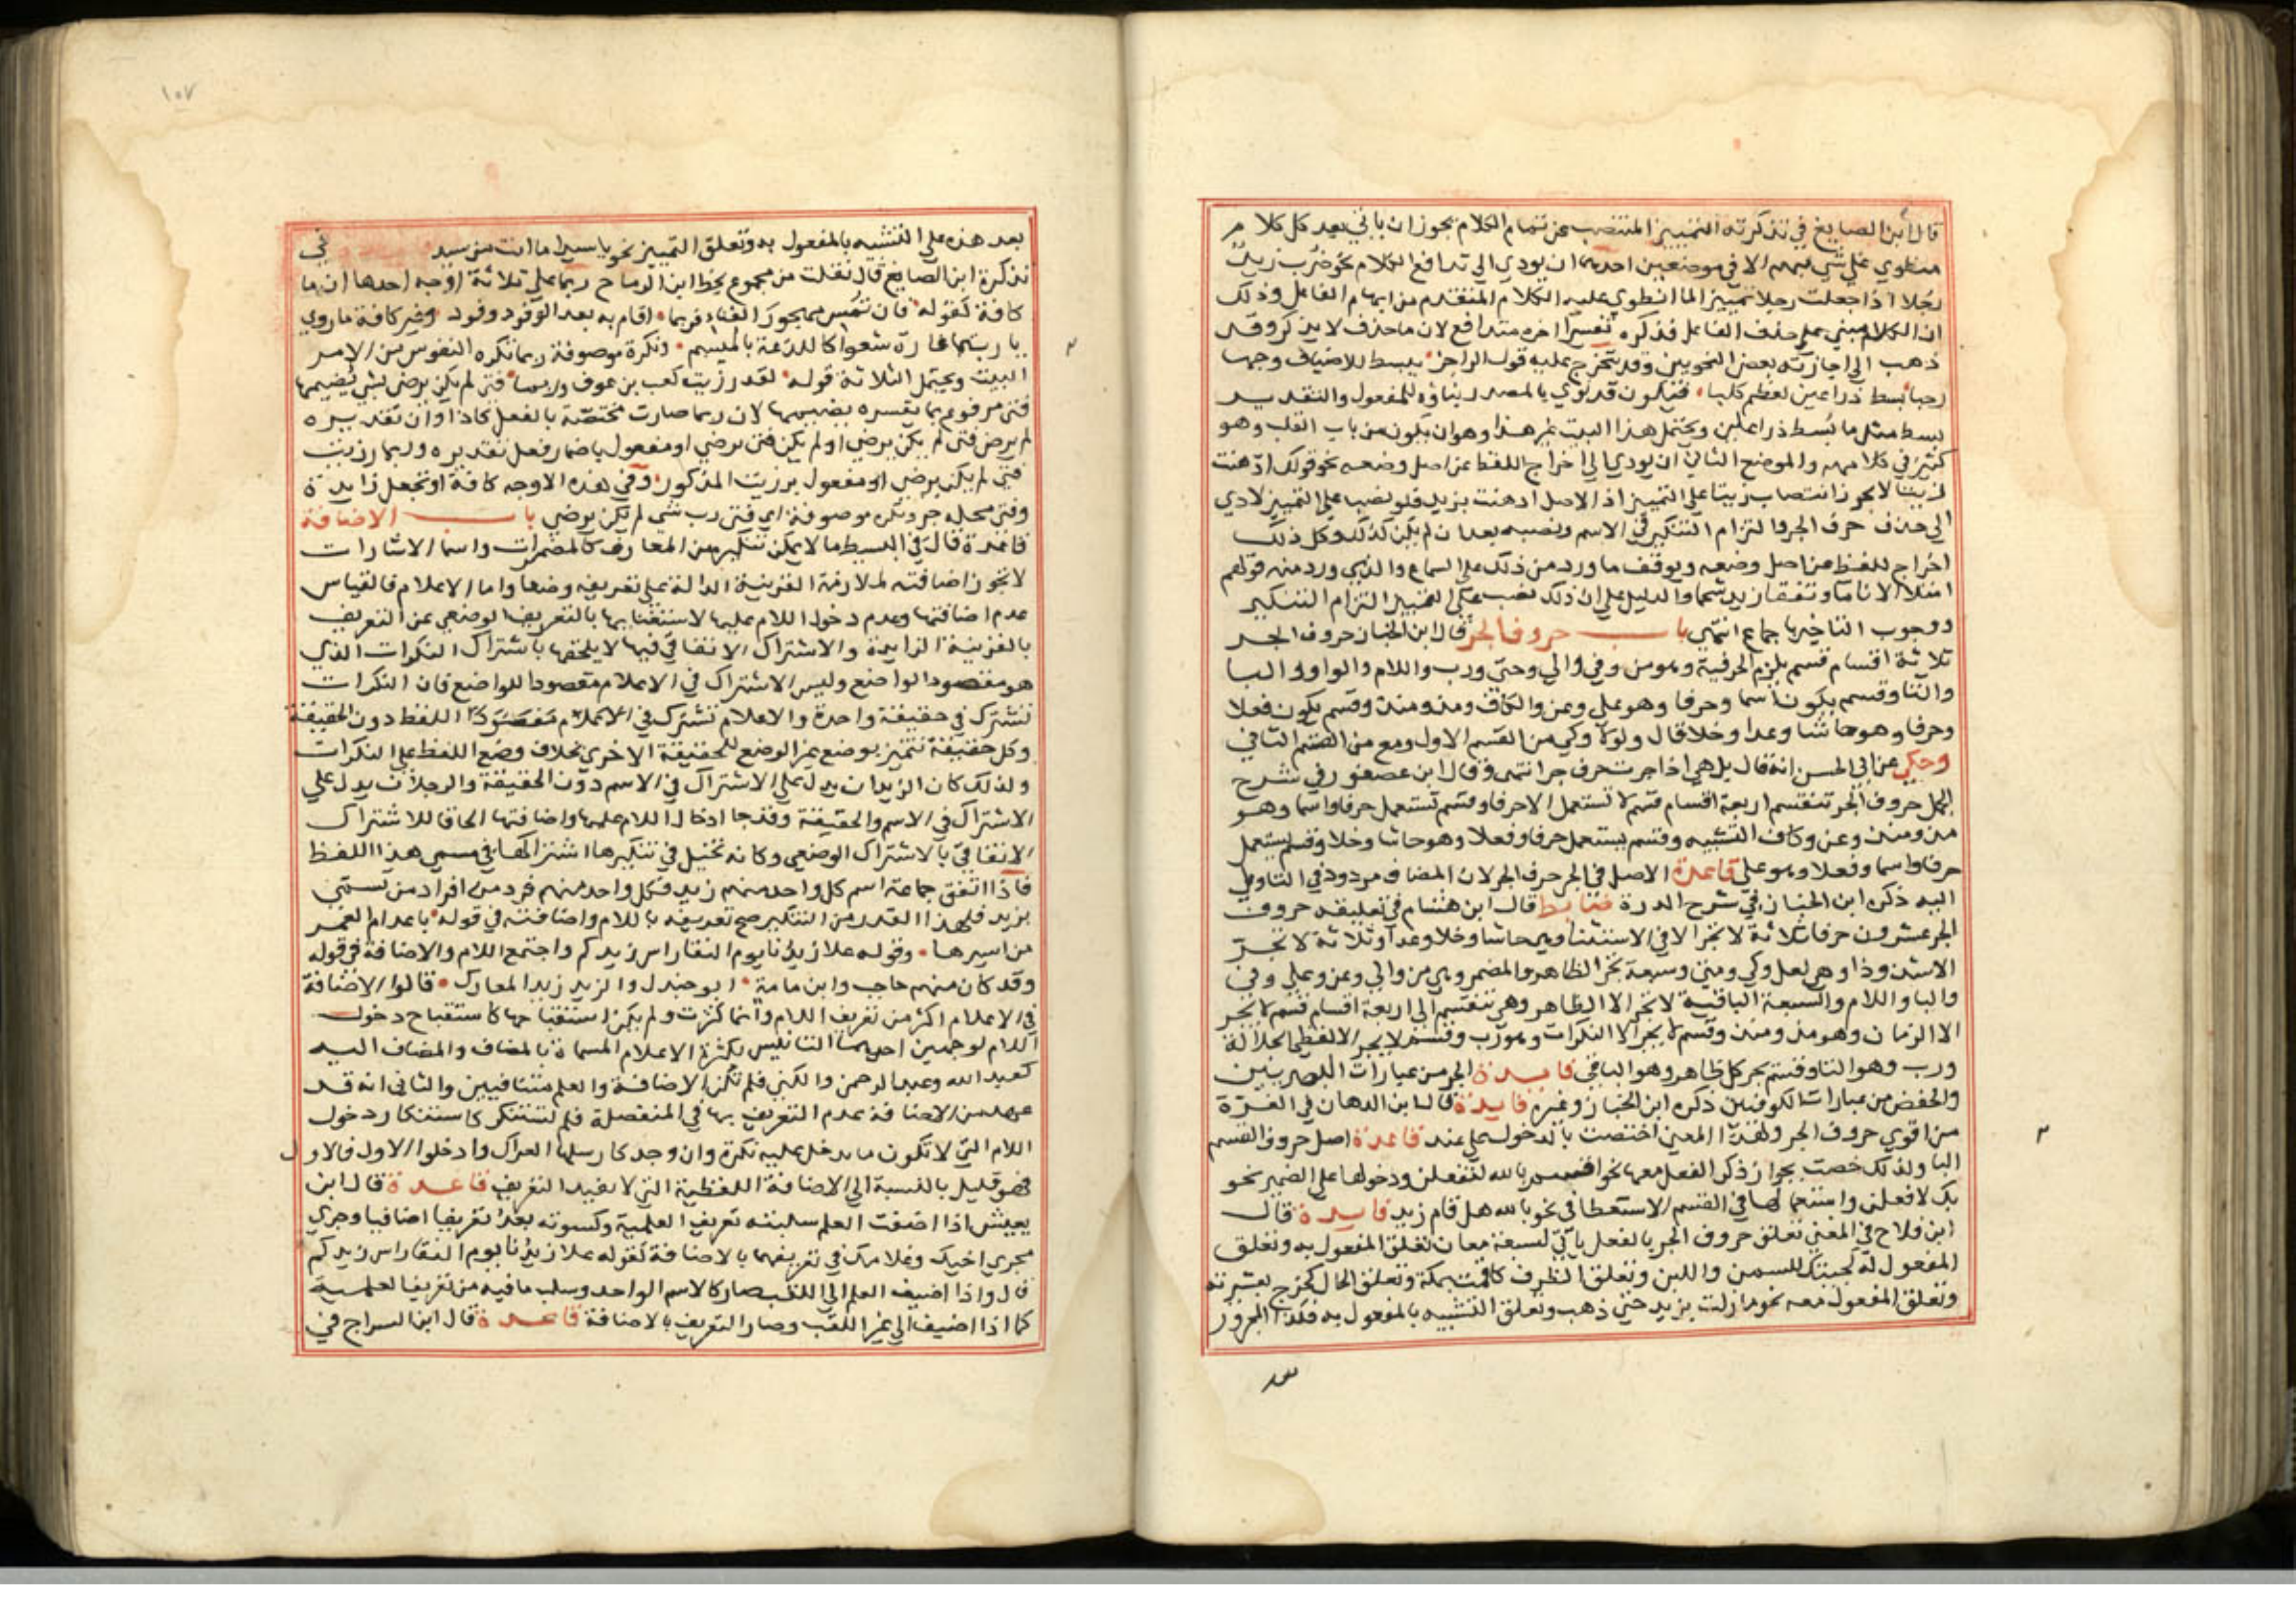 قال ابن الصايغ في تذكرته التمييز المنتصب عن تمام الكلام يجوز ان ياتي بعد كل كلام
منطوي على شي مبهم الا في موضعين احدهما ان يودي الى تدافع الكلام نحو ضُرب زيدٌ
رجلا اذا جعلت رجلا تمييزا لما انطوى عليه الكلام المتقدم من ابهام الفاعل وذلك
ان الكلام مبني على حذف الفاعل فذكره تفسيرًا اخره متدافع لان ما حذف لا يذكر وقد
ذهب الى اجازته بعض النحويين وقد يتخرج عليه قول الراجز يبسط للاضياف وجها
رحبا بسط ذراعين لعظم كلبا فيكون قد نوي بالمصدر بناؤه للمفعول والتقدير
بسط مثل ما بُسط ذراعين ويحتمل هذا البيت غير هذا وهو ان يكون من باب القلب وهو
كثير في كلامهم والموضع الثاني ان يودي الى اخراج اللفظ عن اصل وضعه نحو قولك ادهنت
زيتا لا يجوز انتصاب زيتا على التمييز اذ الاصل ادهنت بزيت فلو نصب على التمييز لادي
الى حذف حرف الجر والتزام التنكير في الاسم ونصبه بعد ان لم يكن كذلك وكل ذلك
اخراج للفظ عن اصل وضعه ويوقف ما ورد من ذلك على السماع والذي ورد منه قولهم
امتلا الانا ما وتفقا زيد شحما والدليل على ان ذلك نصب على التمييز التزام التنكير
ووجوب التاخير باجماع انتهى باب حروف الجر قال ابن الخباز حروف الجر
ثلاثة اقسام قسم يلزم الحرفية وهو من وفي والى وحتى ورب واللام والواو والبا
والتا وقسم يكون اسما وحرفا وهو على وعن والكاف ومذ ومنذ وقسم يكون فعلا
وحرفا وهو حاشا وعدا وخلا قال ولولا وكي من القسم الاول ومع من القسم الثاني
وحكي عن ابي الحسن انه قال بل هي اذا جرت حرف جر انتهى وقال ابن عصفور في شرح
الجمل حروف الجر تنقسم اربعة اقسام قسم لا تستعمل الا حرفا وقسم تستعمل حرفا واسما وهو
مذ ومنذ وعن وكاف التشبيه وقسم يستعمل حرفا وفعلا وهو حاشا وخلا وقسم يستعمل
حرفا واسما وفعلا وهو على قاعدة الاصل في الجر حرف الجر لان المضاف مردود في التاويل
اليه ذكره ابن الخباز في شرح الدرة ضابط قال ابن هشام في تعليقه حروف
الجر عشرون حرفا ثلاثة لا تجر الا في الاستثنا وهي حاشا وخلا وعدا وثلاثة لا تجر
الا شذوذا وهي لعل وكي ومتى وسبعة تجر الظاهر والمضمر وهي من والى وعن وعلى وفي
والبا واللام والسبعة الباقية لا تجر الا الظاهر وهي تنقسم الى اربعة اقسام قسم لا يجر
الا الزمان وهو مذ ومنذ وقسم لا يجر الا النكرات وهو رب وقسم لا يجر الا لفظي الجلالة
ورب وهو التا وقسم يجر كل ظاهر وهو الباقي فايدة الجر من عبارات البصريين
والخفض من عبارات الكوفيين ذكره ابن الخباز وغيره فايدة قال ابن الدهان في الغرة
من اقوي حروف الجر ولهذا المعنى اختصت بالدخول على عند قاعدة اصل حروف القسم
البا ولذلك خصت بجواز ذكر الفعل معها نحو اقسم بالله لتفعلن ودخولها على الضمير نحو
بك لافعلن واستعمالها في القسم الاستعطافي نحو بالله هل قام زيد فايدة قال
ابن فلاح في المغني تعلق حروف الجر بالفعل ياتي لسبعة معان تعلق المفعول به وتعلق
المفعول له كجئتك للسمن واللبن وتعلق الظرف كاقمت بمكة وتعلق الحال كخرج بعشيرته
وتعلق المفعول معه نحو ما زلت بزيد حتى ذهب وتعلق التشبيه بالمفعول به فكذا المجرور
١٠٧
بعد هذه على التشبيه بالمفعول به وتعلق التمييز نحو يا سيدا ما انت من سيد في
تذكرة ابن الصايغ قال نقلت من مجموع بخط ابن الرماح ربما على ثلاثة اوجه احدها ان ما
كافة كقوله فان تمس مهجور الفناء فربما اقام به بعد الوفود وفود وغير كافة ما روي
يا ربتما غارة شعوا كاللذعة بالميسم ونكرة موصوفة ربما تكره النفوس من الامر
البيت ويحتمل الثلاثة قوله لقد رزيت كعب بن عوف وربما فتى لم يكن يرضى بشي يُضيمها
فتى مرفوع بما يفسره بضيمها لان ربما صارت مختصة بالفعل كاذا وان تقديره
لم يرض فتى لم يكن يرضى او لم يكن فتى يرضى او مفعول باضمار فعل تقديره وربما رزيت
فتى لم يكن يرضى او مفعول برزيت المذكور وفي هذه الاوجه كافة او تجعل زايدة
وفتى محله جر ونكرة موصوفة اي فتى رب شي لم يكن يرضى باب الاضافة
قاعدة قال في البسيط ما لا يمكن تنكيره من المعارف كالمضمرات واسما الاشارات
لا تجوز اضافته لملازمة القرينة الدالة على تعريفه وضعا واما الاعلام فالقياس
عدم اضافتها وعدم دخول اللام عليها لاستغنايها بالتعريف الوضعي عن التعريف
بالقرينة الزايدة والاشتراك الاتفاقي فيها لا يلحقها باشتراك النكرات الذي
هو مقصود الواضع وليس الاشتراك في الاعلام مقصودا للواضع فان النكرات
تشترك في حقيقة واحدة والاعلام تشترك في اللفظ دون الحقيقة
وكل حقيقة تتميز بوضع غير الوضع للحقيقة الاخرى بخلاف وضع اللفظ على النكرات
ولذلك كان الزيدان يدل على الاشتراك في الاسم دون الحقيقة والرجلان يدل على
الاشتراك في الاسم والحقيقة وقد جا ادخال اللام عليها واضافتها الحاقا للاشتراك
الاتفاقي بالاشتراك الوضعي وكانه تخيل في تنكيرها اشتراكها في مسمى هذا اللفظ
فاذا اتفق جماعة اسم كل واحد منهم زيد فكل واحد منهم فرد من افراد من تسمى
بزيد فلهذا القدر من التنكير صح تعريفه باللام واضافته في قوله باعد ام العمر
من اسيرها وقوله علا زيدُنا يوم النقا راس زيدكم واجتمع اللام والاضافة في قوله
وقد كان منهم حاجب وابن مامة ابو جندل والزيد زيد المعارك قالوا الاضافة
في الاعلام اكثر من تعريف اللام وانما كثرت ولم يكن استقباحها كاستقباح دخول
اللام لوجهين احدهما التانيس بكثرة الاعلام المسماة بالمضاف والمضاف اليه
كعبد الله وعبد الرحمن والكنى فلم تكن الاضافة والعلم متنافيين والثاني انه قد
عهد من الاضافة عدم التعريف بها في المنفصلة فلم تستنكر كاستنكار دخول
اللام التي لا تكون ما يدخل عليه نكرة وان وجد كارسلها العراك وادخلوا الاول فالاول
فهو قليل بالنسبة الى الاضافة اللفظية التي لا تفيد التعريف قاعدة قال ابن
يعيش اذا اضفت العلم سلبته تعريف العلمية وكسوته بعدُ تعريفا اضافيا وجرى
مجرى اخيك وغلامك في تعريفهما بالاضافة كقوله علا زيدنا يوم النقا راس زيدكم
قال واذا اضيف العلم الى اللقب صار كالاسم الواحد وسلب ما فيه من تعريف العلمية
كما اذا اضيف الى غير اللقب وصار التعريف بالاضافة قاعدة قال ابن السراج في